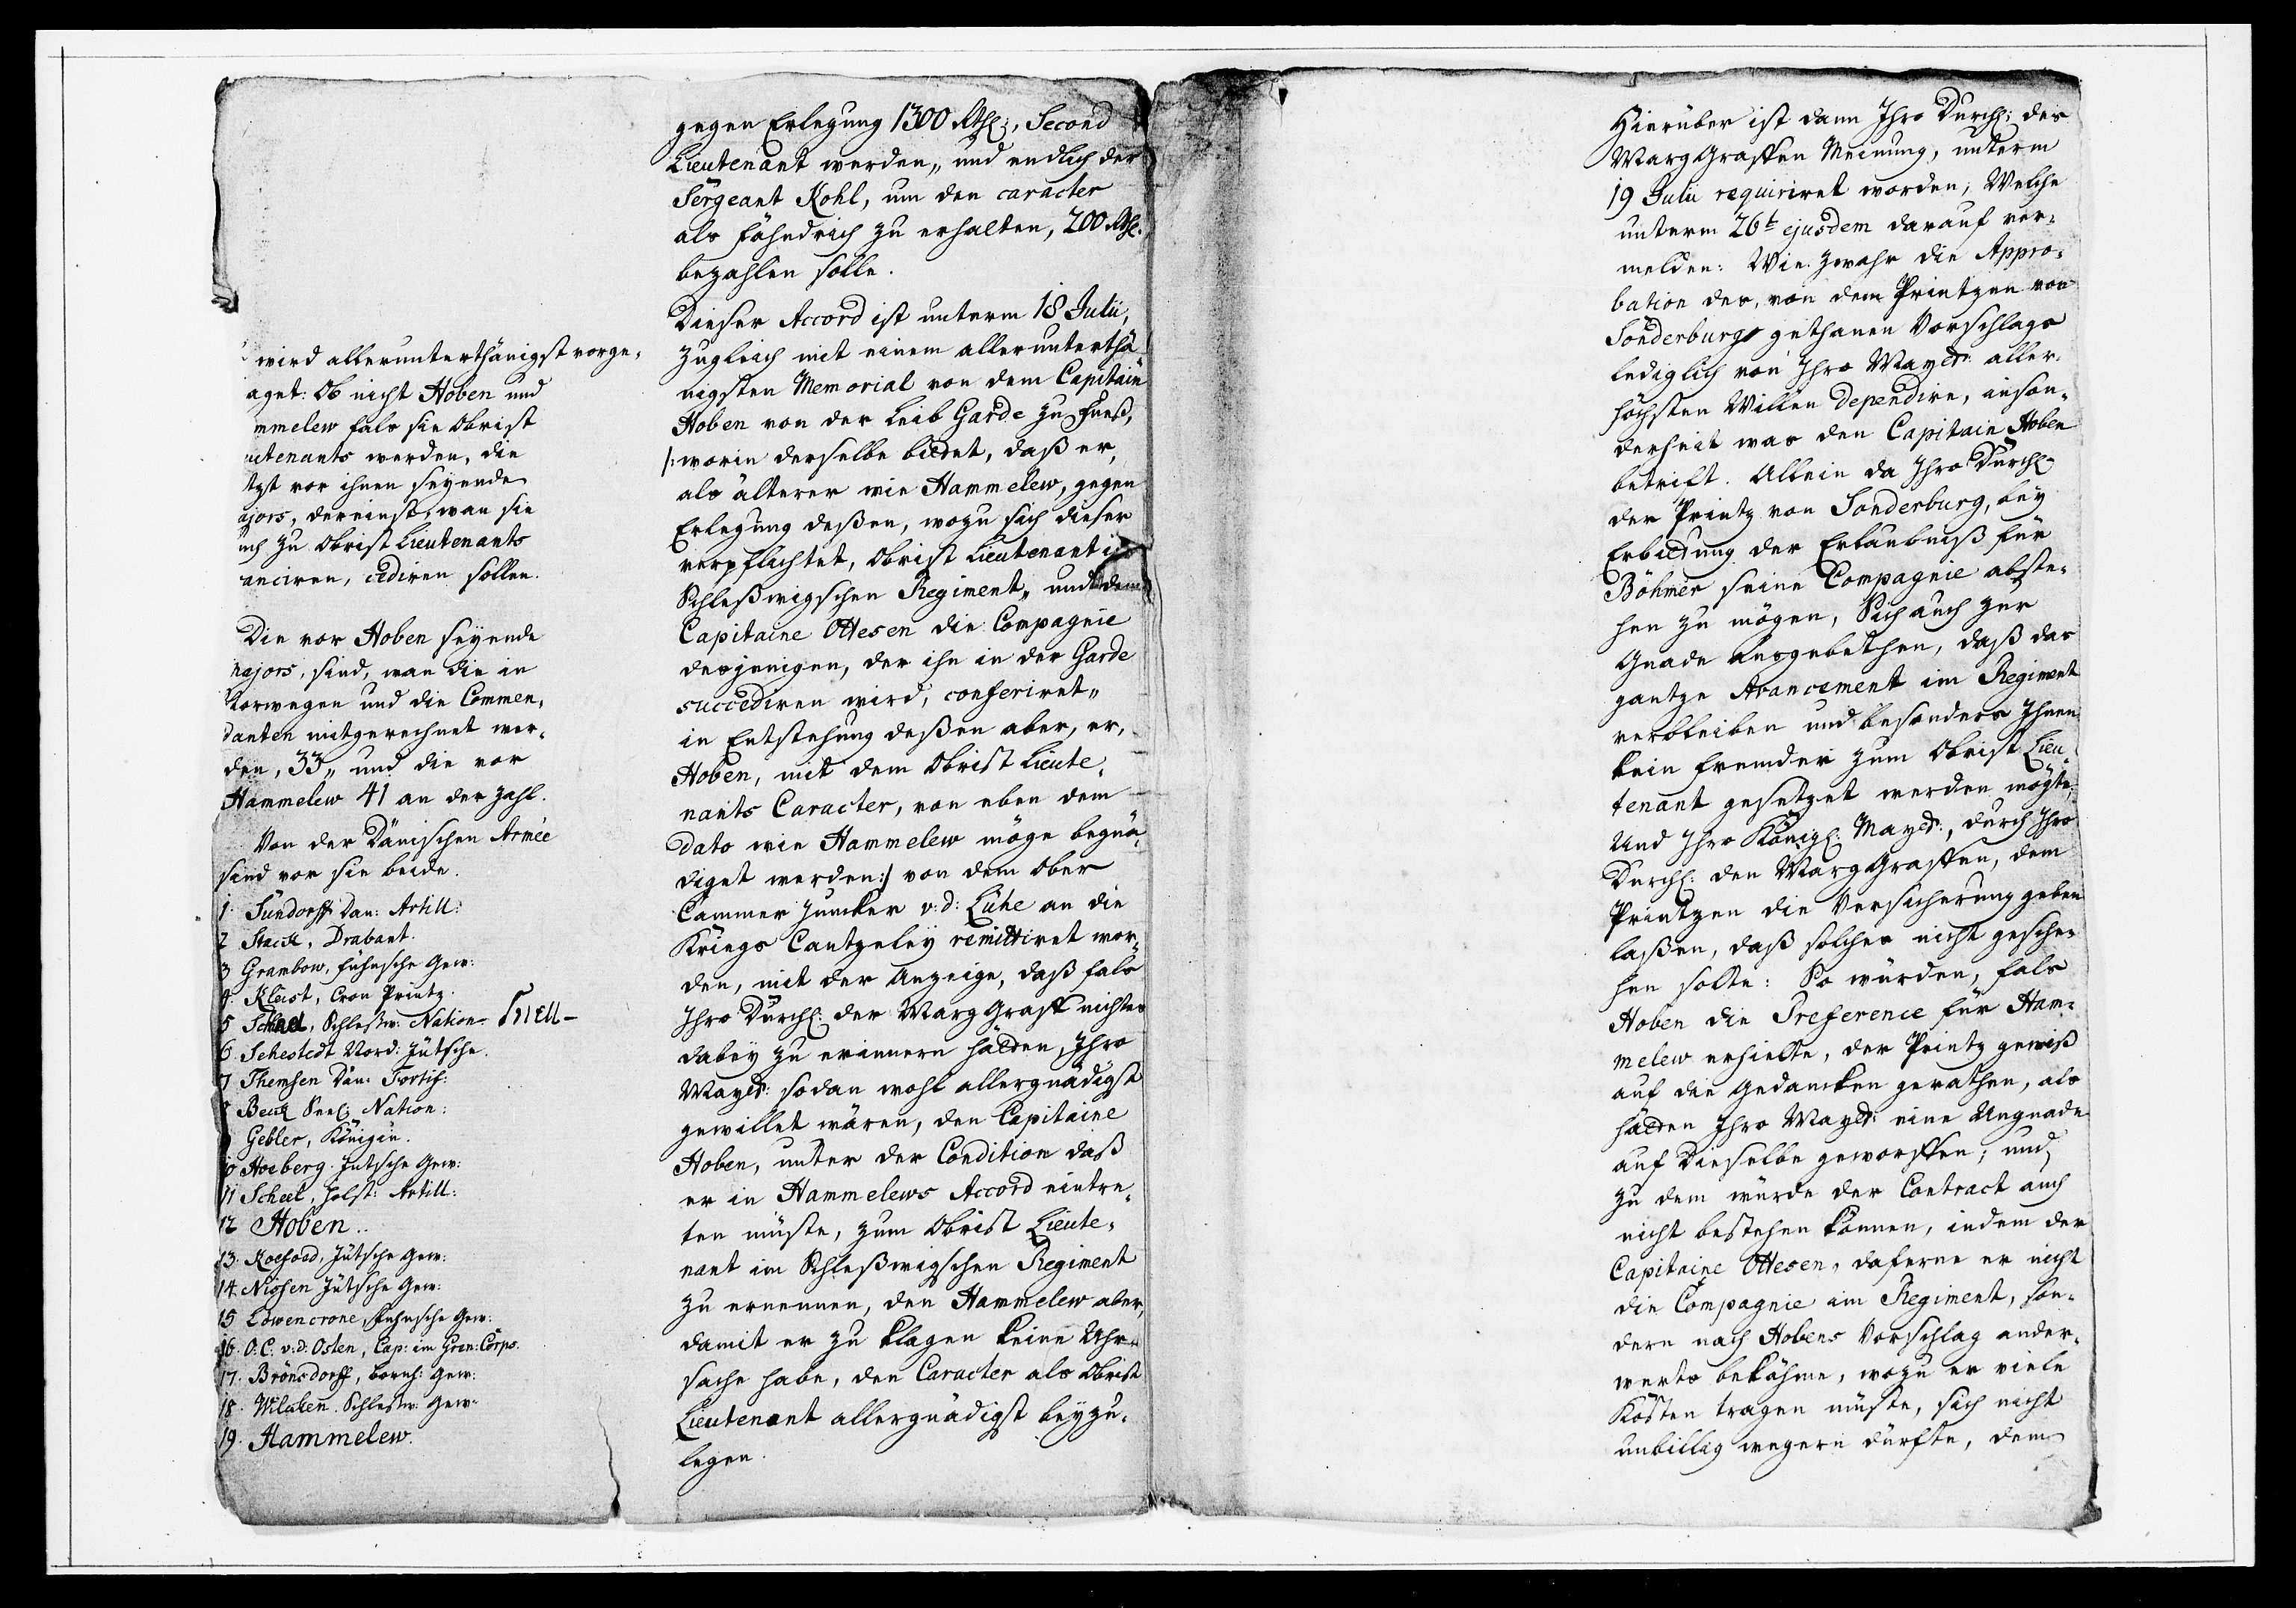 wird allerunterthänigst vorge-
aget: Ob nicht Hoben und
mmelew fals sie Obrist
utenants werden, die
tzt vor ihnen seyende
ajors, dereinst, wan sie
uch zu Obrist Lieutenants
anciren, cediren sollen.
Die vor Hoben seyende
majors, sind, wan die in
Norwegen und die Commen-
danten mitgerechnet wer-
den, 33,, und die vor
Hammelew 41 an der Zahl.
Von der Dänischen Armée
sind vor sie beide.
1. Sundorff Dän: Artill:
2 Stack, Drabant.
3 Grambow, Fühnsche Gew:
4. Kleist, Cron Printz.
5 Scheel, Schleßw. Nation. Snell-
6. Sehestedt Nord: Jütsche.
7 Themsen Dän: Fortif:
8 Beck Seel: Nation:
9 Gebler, Königin.
10 Hoeberg. Jütsche Gew:
11 Scheel, Holst: Artill:
12 Hoben..
13. Roepsdd, Jütsche Gew:
14. Nissen Jütsche Gew:
15 Löwencrone, Fühnsche Gew:
16. O. C. v: d: Osten, Cap: im Gren: Corps.
17. Brönsdorff, bornh: Gew:
18. Milchen. Schlesw: Gew:
19. Hammelew.
gegen Erlegung 1300 Rthl:, Second
Lieutenant werden,, und endlich der
Sergeant Kohl, um den caracter
als Fähndrich zu erhalten, 200 Rthl.
bezahlen solle.
Dieser Accord ist unterm 18 Julii,
zugleich mit einem allerunterthä-
nigsten Memorial von dem Capitain
Hoben von der Leib Garde zu Fueß,
/: worin derselbe bittet, daß er,
als älterer wie Hammelew, gegen
Erlegung deßen, wozu sich dieser
verpflichtet, Obrist Lieutenant im
Schleßwigschen Regiment,, und dem
Capitaine Ottesen die Compagnie
desjenigen, der ihn in der Garde
succediren wird, conferiret,,
in Entstehung deßen aber, er,
Hoben, mit dem Obrist Lieute-
nants Caracter, von eben dem
dato wie Hammelew möge begnä-
diget werden:/ von dem Ober
Cammer Juncker v: d: Lühe an die
Kriegs Cantzeley remittiret wor-
den, mit der Anzeige, daß fals
Ihro Durchl: der Marg Graff nichtes
dabey zu erinnern hätten, Ihro
Maytt: sodan wohl allergnädigst
gewillet wären, den Capitaine
Hoben, unter der Condition daß
er in Hammelews Accord eintre-
ten müste, zum Obrist Lieute-
nant im Schleßwigschen Regiment
zu ernennen, den Hammelew aber,
damit er zu klagen keine Uhr-
sache habe, den Caracter als Obrist
Lieutenant allergnädigst beyzu-
legen.
Hierüber ist dann Ihro Durchl: des
Marg Graffen Meinung, unterm
19 Julii requiriret worden; Welche
unterm 26t ejusdem darauf ver-
melden: Wie zwahr die Appro-
bation des, von dem Printzen von
Sonderburg gethanen Vorschlags
lediglich von Ihro Maytt: aller-
höchsten Willen dependire, inson-
derheit was den Capitain Hoben
betrift. Allein da Ihro Durchl:
der Printz von Sonderburg, bey
Erbittung der Erlaubniß für
Böhmer seine Compagnie abste-
hen zu mögen, Sich auch zur
Gnade ausgebethen, daß das
gantze Avancement im Regiment
verbleiben und besonders Ihnen
kein Fremder zum Obrist Lieu-
tenant gesetzet werden mögte;
Und Ihro Königl: Maytt:, durch Ihro
Durchl: den Marg Graffen, dem
Printzen die Versicherung geben
laßen, daß solches nicht gesche-
hen solte: So würden, fals
Hoben die Preference für Ham-
melew erhielte, der Printz gewiß
auf die Gedancken gerathen, als
hätten Ihro Maytt: eine Ungnade
auf Dieselbe geworffen; und,
zu dem würde der Contract auch
nicht bestehen können, indem der
Capitaine Ottesen, daferne er nicht
die Compagnie im Regiment, son-
dern nach Hobens Vorschlag ander-
werts bekähme, wozu er viele
Kosten tragen müste, sich nicht
unbillig wegern dürfte, dem